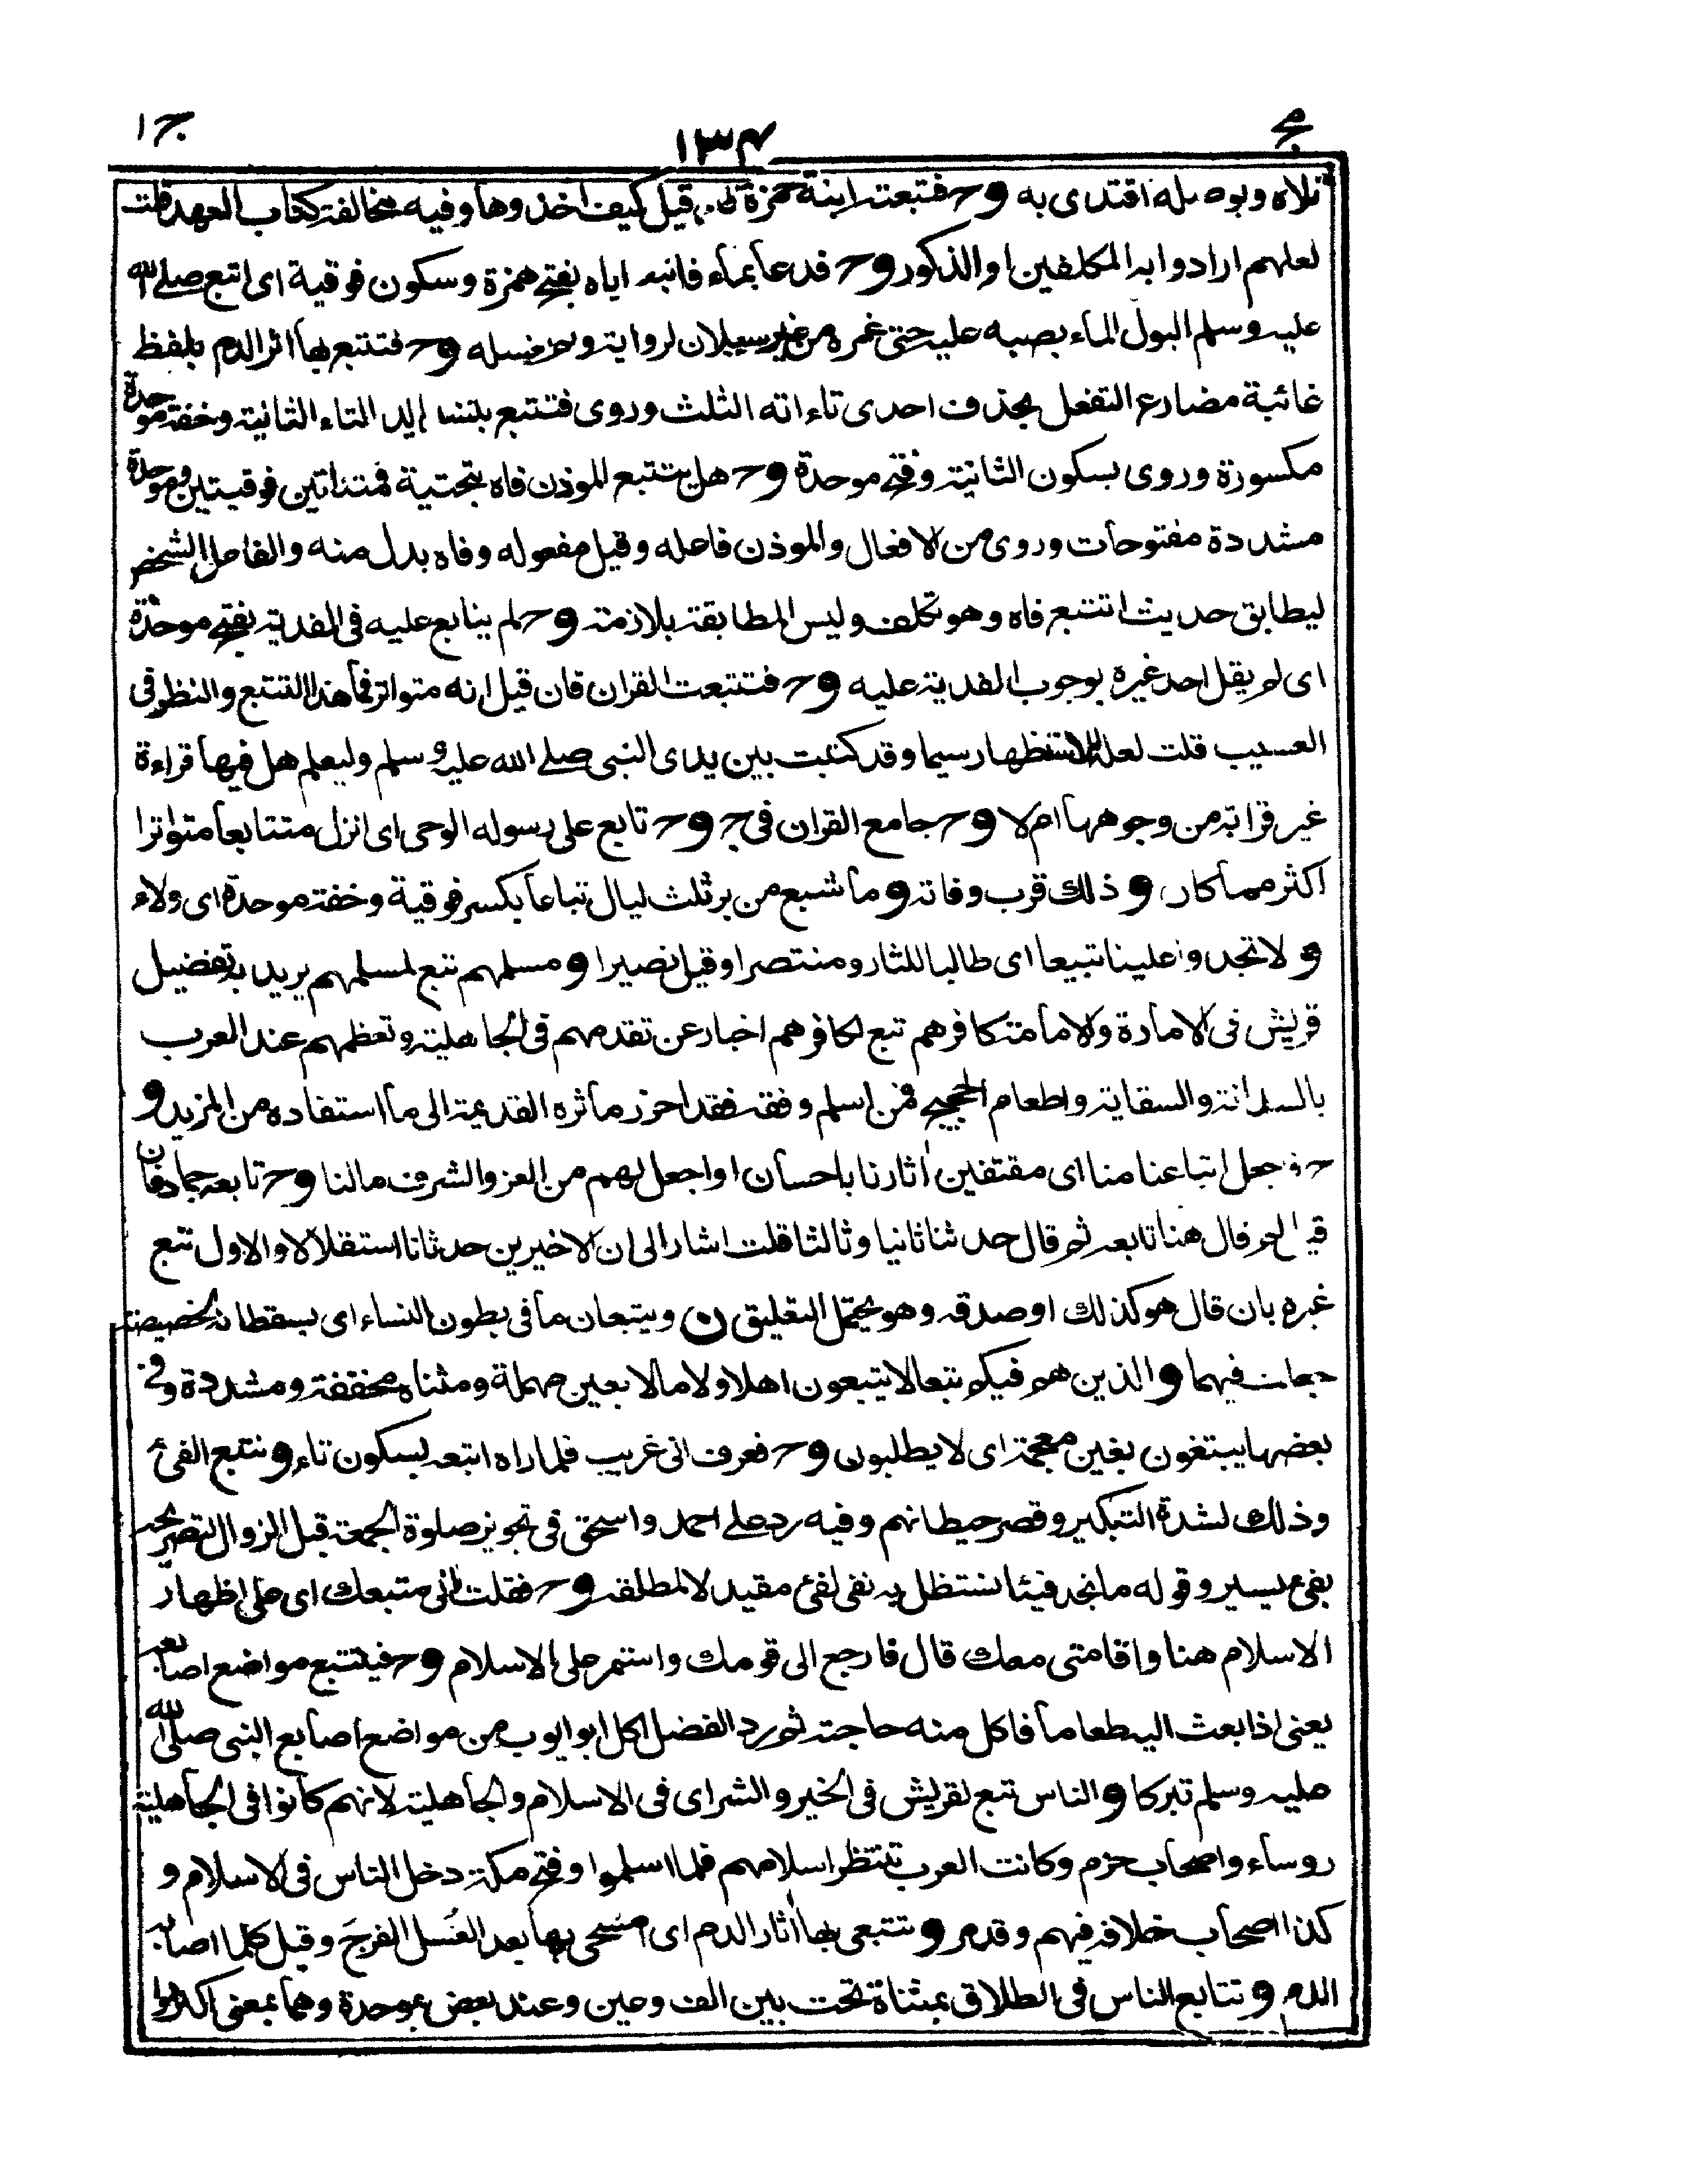 مج
١٣٤
ج ١
تلاه وبوصله اقتدى به وح فتبعته ابنة حمزة قيل كيف اخذوها وفيه مخالفة كتاب العهد قلت
لعلهم ارادوا به المكلفين او الذكور وح فدعا بماء فاتبعه اياه بفتح همزة وسكون فوقية اى اتبع صلى الله
عليه وسلم البول الماء بصبه عليه حتى غمره من غير سيلان لرواية ولم يغسله وح فتتبع بها اثر الدم بلفظ
غائبة مضارع التفعل بحذف احدى تاءاته الثلث وروى فتتبع بتشديد التاء الثانية وخفة موحدة
مكسورة وروى بسكون الثانية وفتح موحدة وح هل يتتبع الموذن فاه بتحتية فمثناتين فوقيتين وموحدة
مشددة مفتوحات وروى من الافعال والموذن فاعله وقيل مفعوله وفاه بدل منه والفاعل الشخص
ليطابق حديث اتتبع فاه وهو تكلف وليس المطابقة بلازمة وح لم يتابع عليه فى الفدية بفتح موحدة
اى لم يقل احد غيره بوجوب الفدية عليه وح فتتبعت القران فان قيل انه متواتر فما هذا التتبع والنظر فى
العسيب قلت لعله للاستظهار سيما وقد كتبت بين يدى النبى صلى الله عليه وسلم وليعلم هل فيها قراءة
غير قرائته من وجوهها ام لا وح جامع القران فى ج وح تابع على رسوله الوحى اى انزل متتابعا متواترا
اكثر مما كان وذلك قرب وفاته وما شبع من بر ثلث ليال تباعا بكسر فوقية وخفة موحدة اى ولاء
ولا تجدوا علينا تبيعا اى طالبا للثار ومنتصرا وقيل نصيرا ومسلمهم تبع لمسلمهم يريد به تفضيل
قريش فى الامارة والامامة كافرهم تبع لكافرهم اخبار عن تقدمهم فى الجاهلية وتعظمهم عند العرب
بالسدانة والسقاية واطعام الحجيج فمن اسلم وفقه فقد احرز ماثره القديمة الى ما استفاده من المزيد و
جعل اتباعنا منا اى مقتفين اثارنا باحسان او اجعل لهم من العز والشرف مالنا وح تابعه حماد فان
قيل لم قال هنا تابعه ثم قال حدثنا ثانيا وثالثا قلت اشار الى ان الاخيرين حدثانا استقلالا والاول تبع
غيره بان قال هو كذلك او صدقه وهو يحتمل التعليق ن ويتبعان ما فى بطون النساء اى يسقطانه لخصيصة
جعلت فيهما والذين هم فيكم تبعا لا يتبعون اهلا ولا مالا بعين مهملة ومثناه مخففة ومشددة وفى
بعضها يبتغون بغين معجمة اى لا يطلبون وح فعرف انى غريب فلما راه اتبعه بسكون تاء ونتتبع الفئ
وذلك لشدة التبكير وقصر حيطانهم وفيه رد على احمد واسحق فى تجويز صلوة الجمعة قبل الزوال لتصريحه
بفئ يسير وقوله ما نجد فيئا نستظل به نفى لفئ مقيد لا لمطلقه وح فقلت انى متبعك اى على اظهار
الاسلام هنا واقامتى معك قال فارجع الى قومك واستمر على الاسلام وح فيتتبع مواضع اصابعه
يعنى اذا بعث اليه طعاما فاكل منه حاجته ثم رد الفضل اكل ابو ايوب من مواضع اصابع النبى صلى الله
عليه وسلم تبركا والناس تبع لقريش فى الخير والشر اى فى الاسلام والجاهلية لانهم كانوا فى الجاهلية
روساء واصحاب حزم وكانت العرب تنتظر اسلامهم فلما اسلموا وفتح مكة دخل الناس فى الاسلام و
كذا اصحاب خلافه فيهم وقدمر وتتبعى بها اثار الدم اى امسحى بها بعد الغسل الفرج وقيل كلما اصابه
الدم وتتابع الناس فى الطلاق بمثناة تحت بين الف وعين وعند بعض بموحدة وهما بمعنى اكثروا